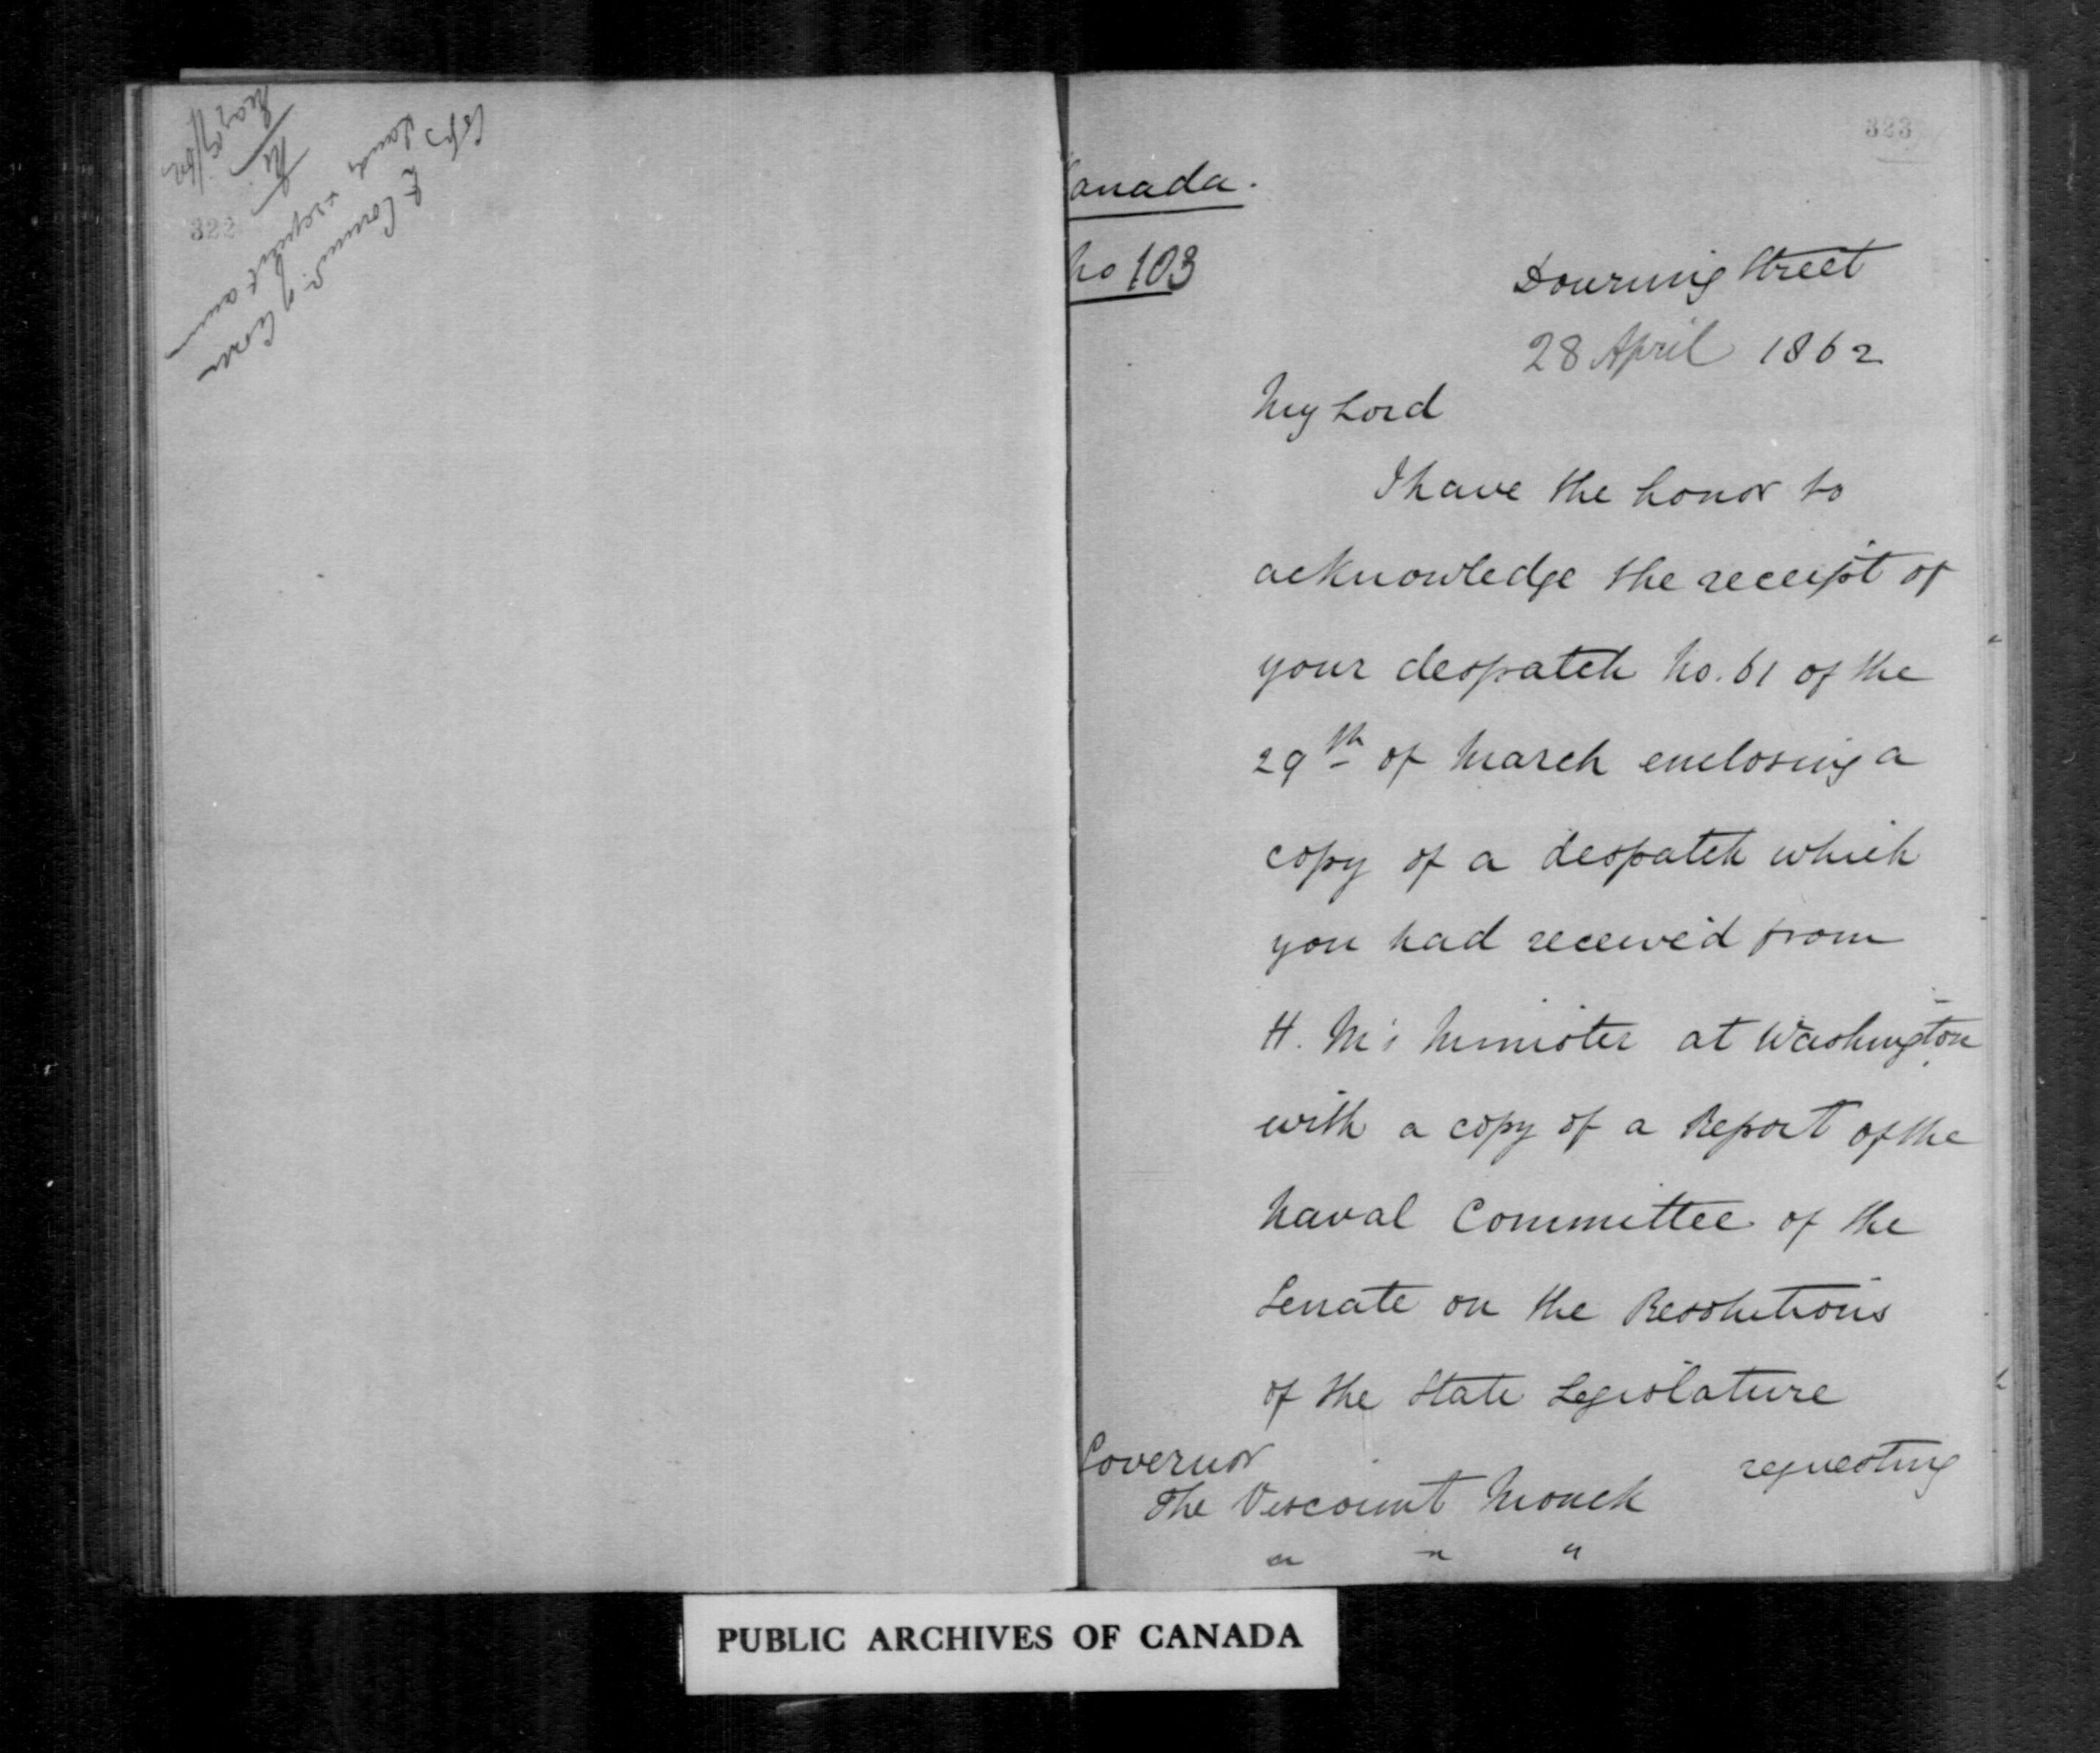 322
Copy
to Commr. of Crown
Lands
323
Canada.
No 103
Downing Street
28 April 1862
My Lord
I have the honor to
acknowledge the receipt of
your despatch No. 61 of the
29th of March enclosing a
copy of a despatch which
you had received from
H. M's Minister at Washington
with a copy of a Report of the
Naval Committee of the
Senate on the Resolutions
of the State Legislature
requesting
Governor
The Viscount Monck
" " "
PUBLIC ARCHIVES OF CANADA